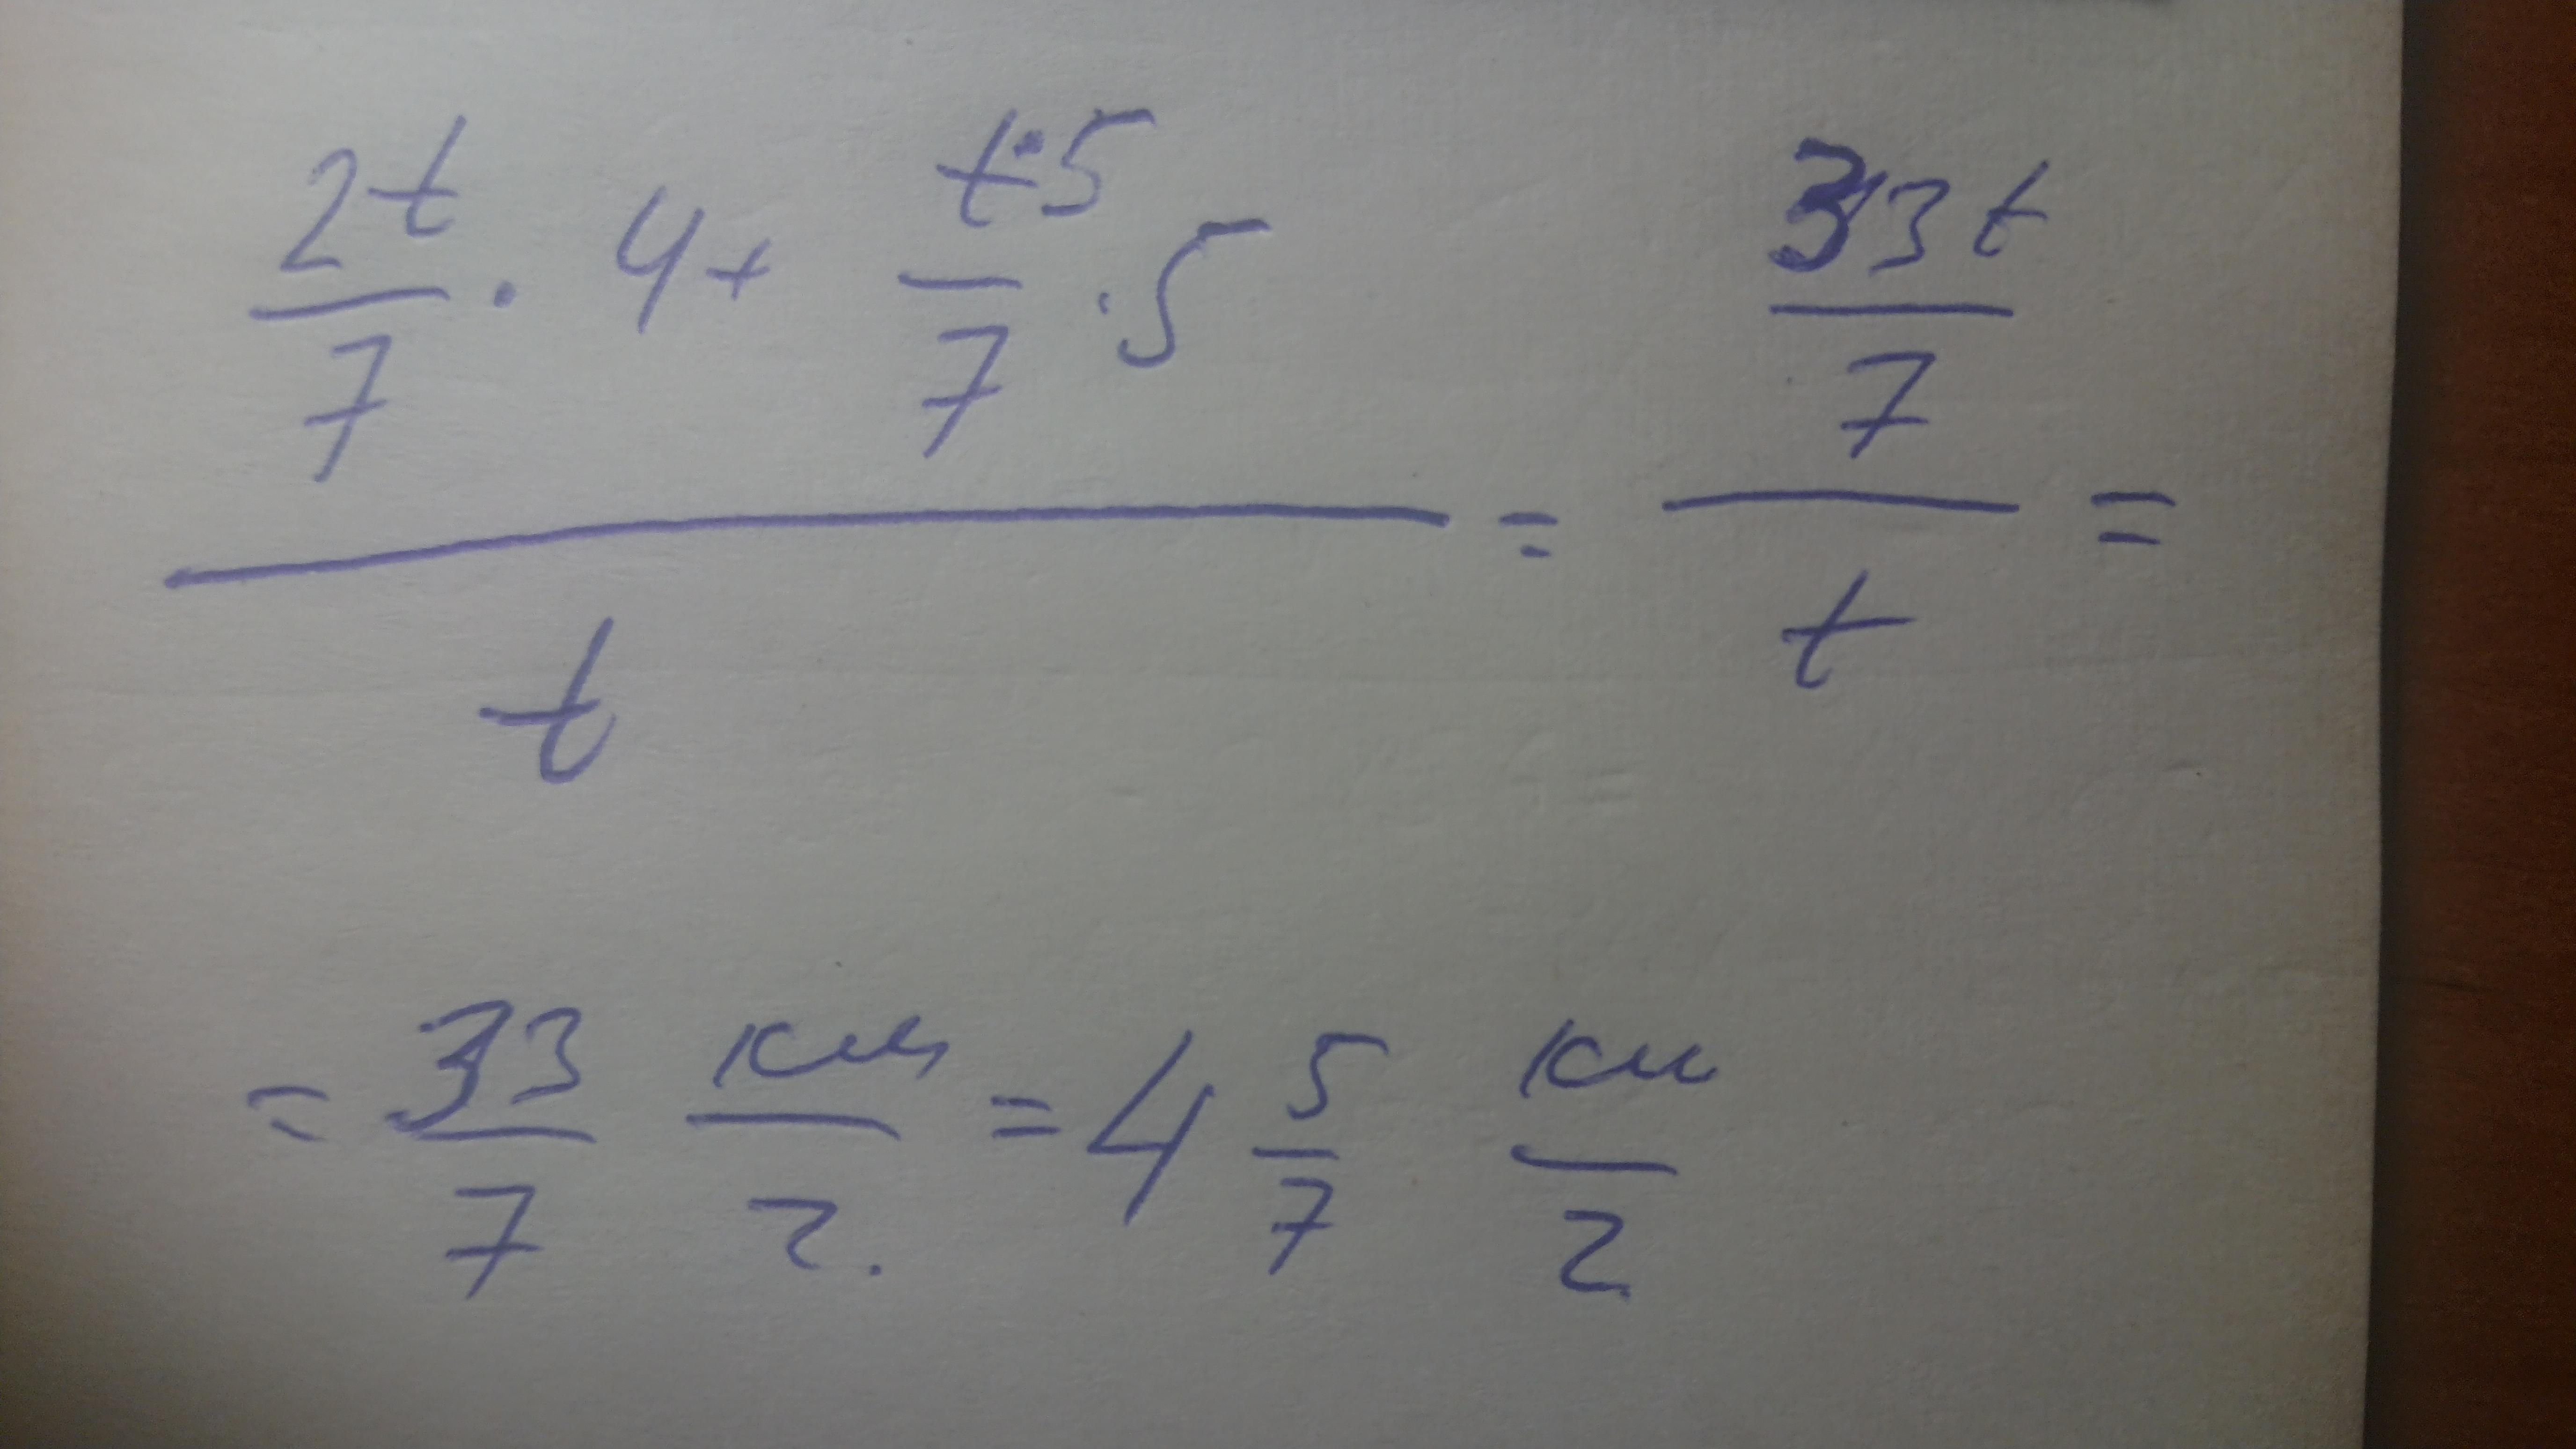 (2t/7 · 4 + t·5/7 · 5) / t = (33t/7) / t =
= 33/7 км/г. = 4 5/7 км/г.